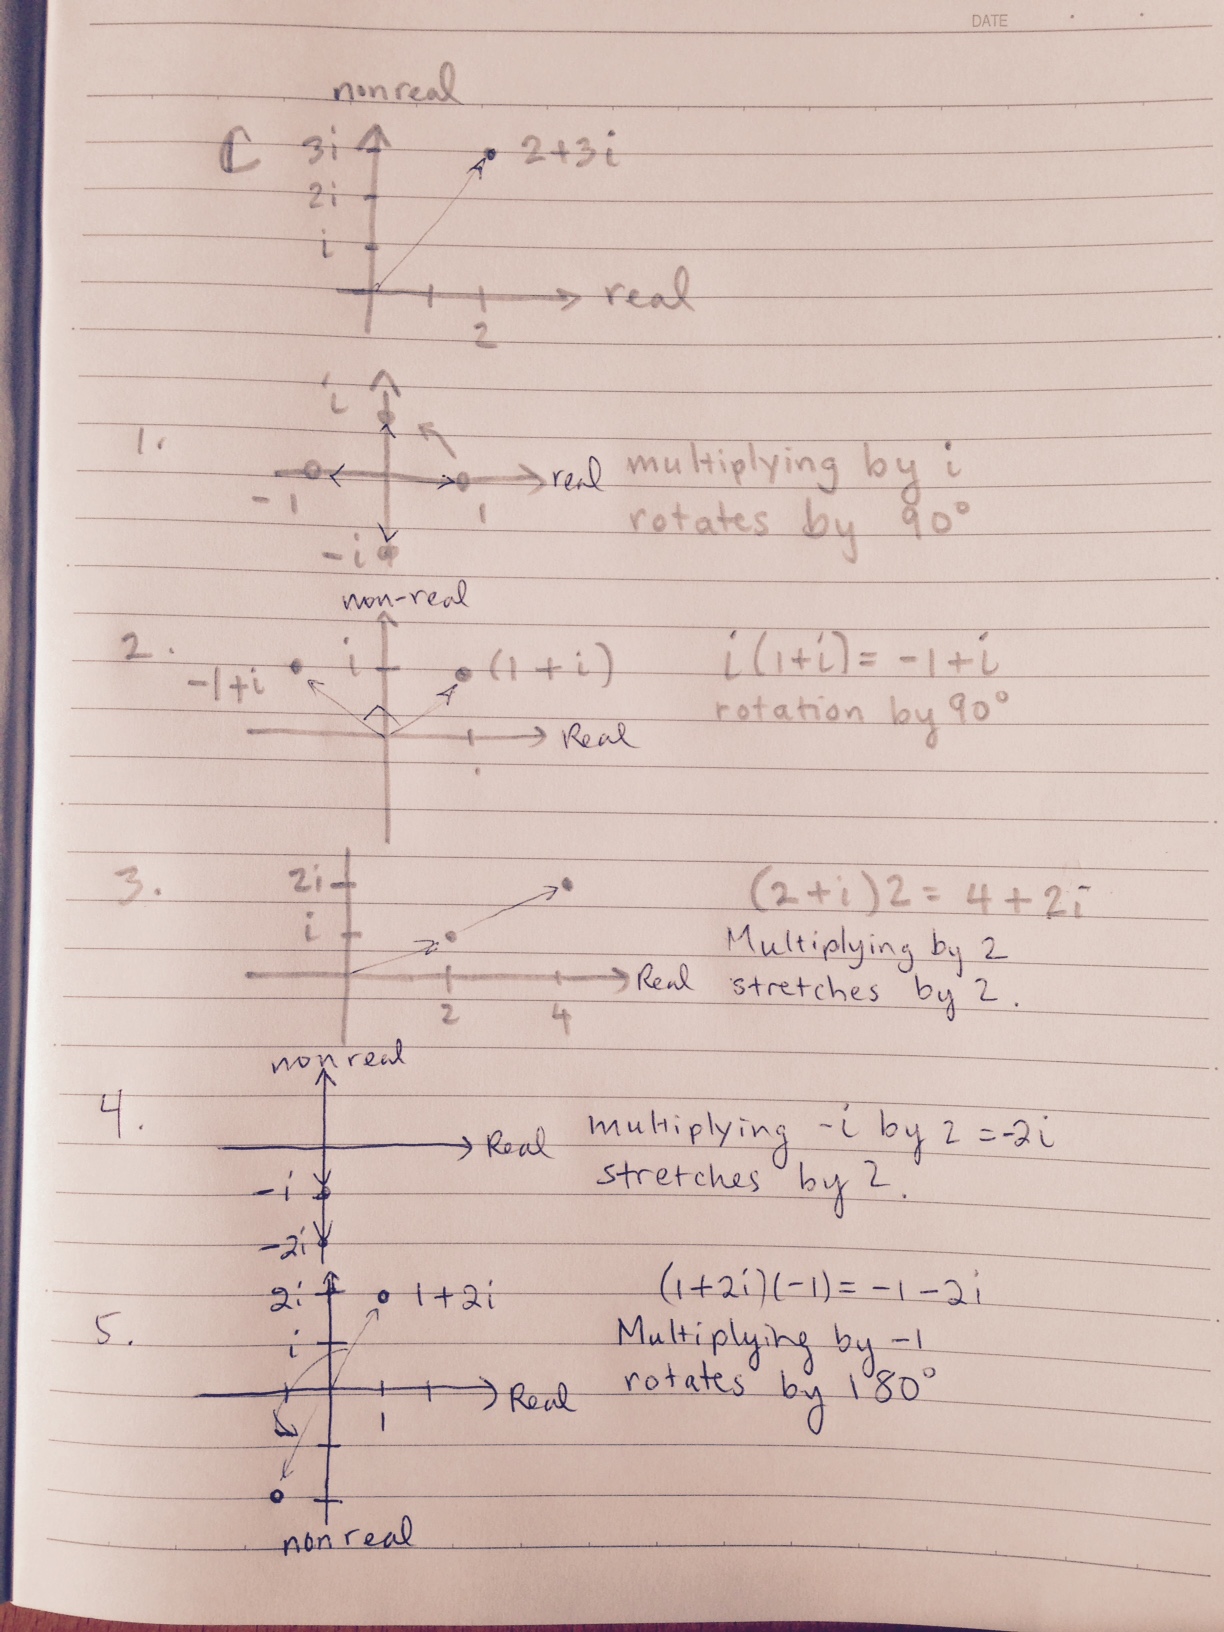 DATE
nonreal
C 3i 2+3i
2i
i
real
2
i
1.
real multiplying by i
-1 1 rotates by 90°
-i
non-real
2. i (1+i) i(1+i)= -1+i
-1+i rotation by 90°
Real
3. 2i (2+i)2= 4+2i
i Multiplying by 2
Real stretches by 2.
2 4
nonreal
4. multiplying -i by 2 =-2i
Real stretches by 2.
-i
-2i
2i 1+2i (1+2i)(-1)= -1-2i
5. i Multiplying by -1
Real rotates by 180°
1
nonreal